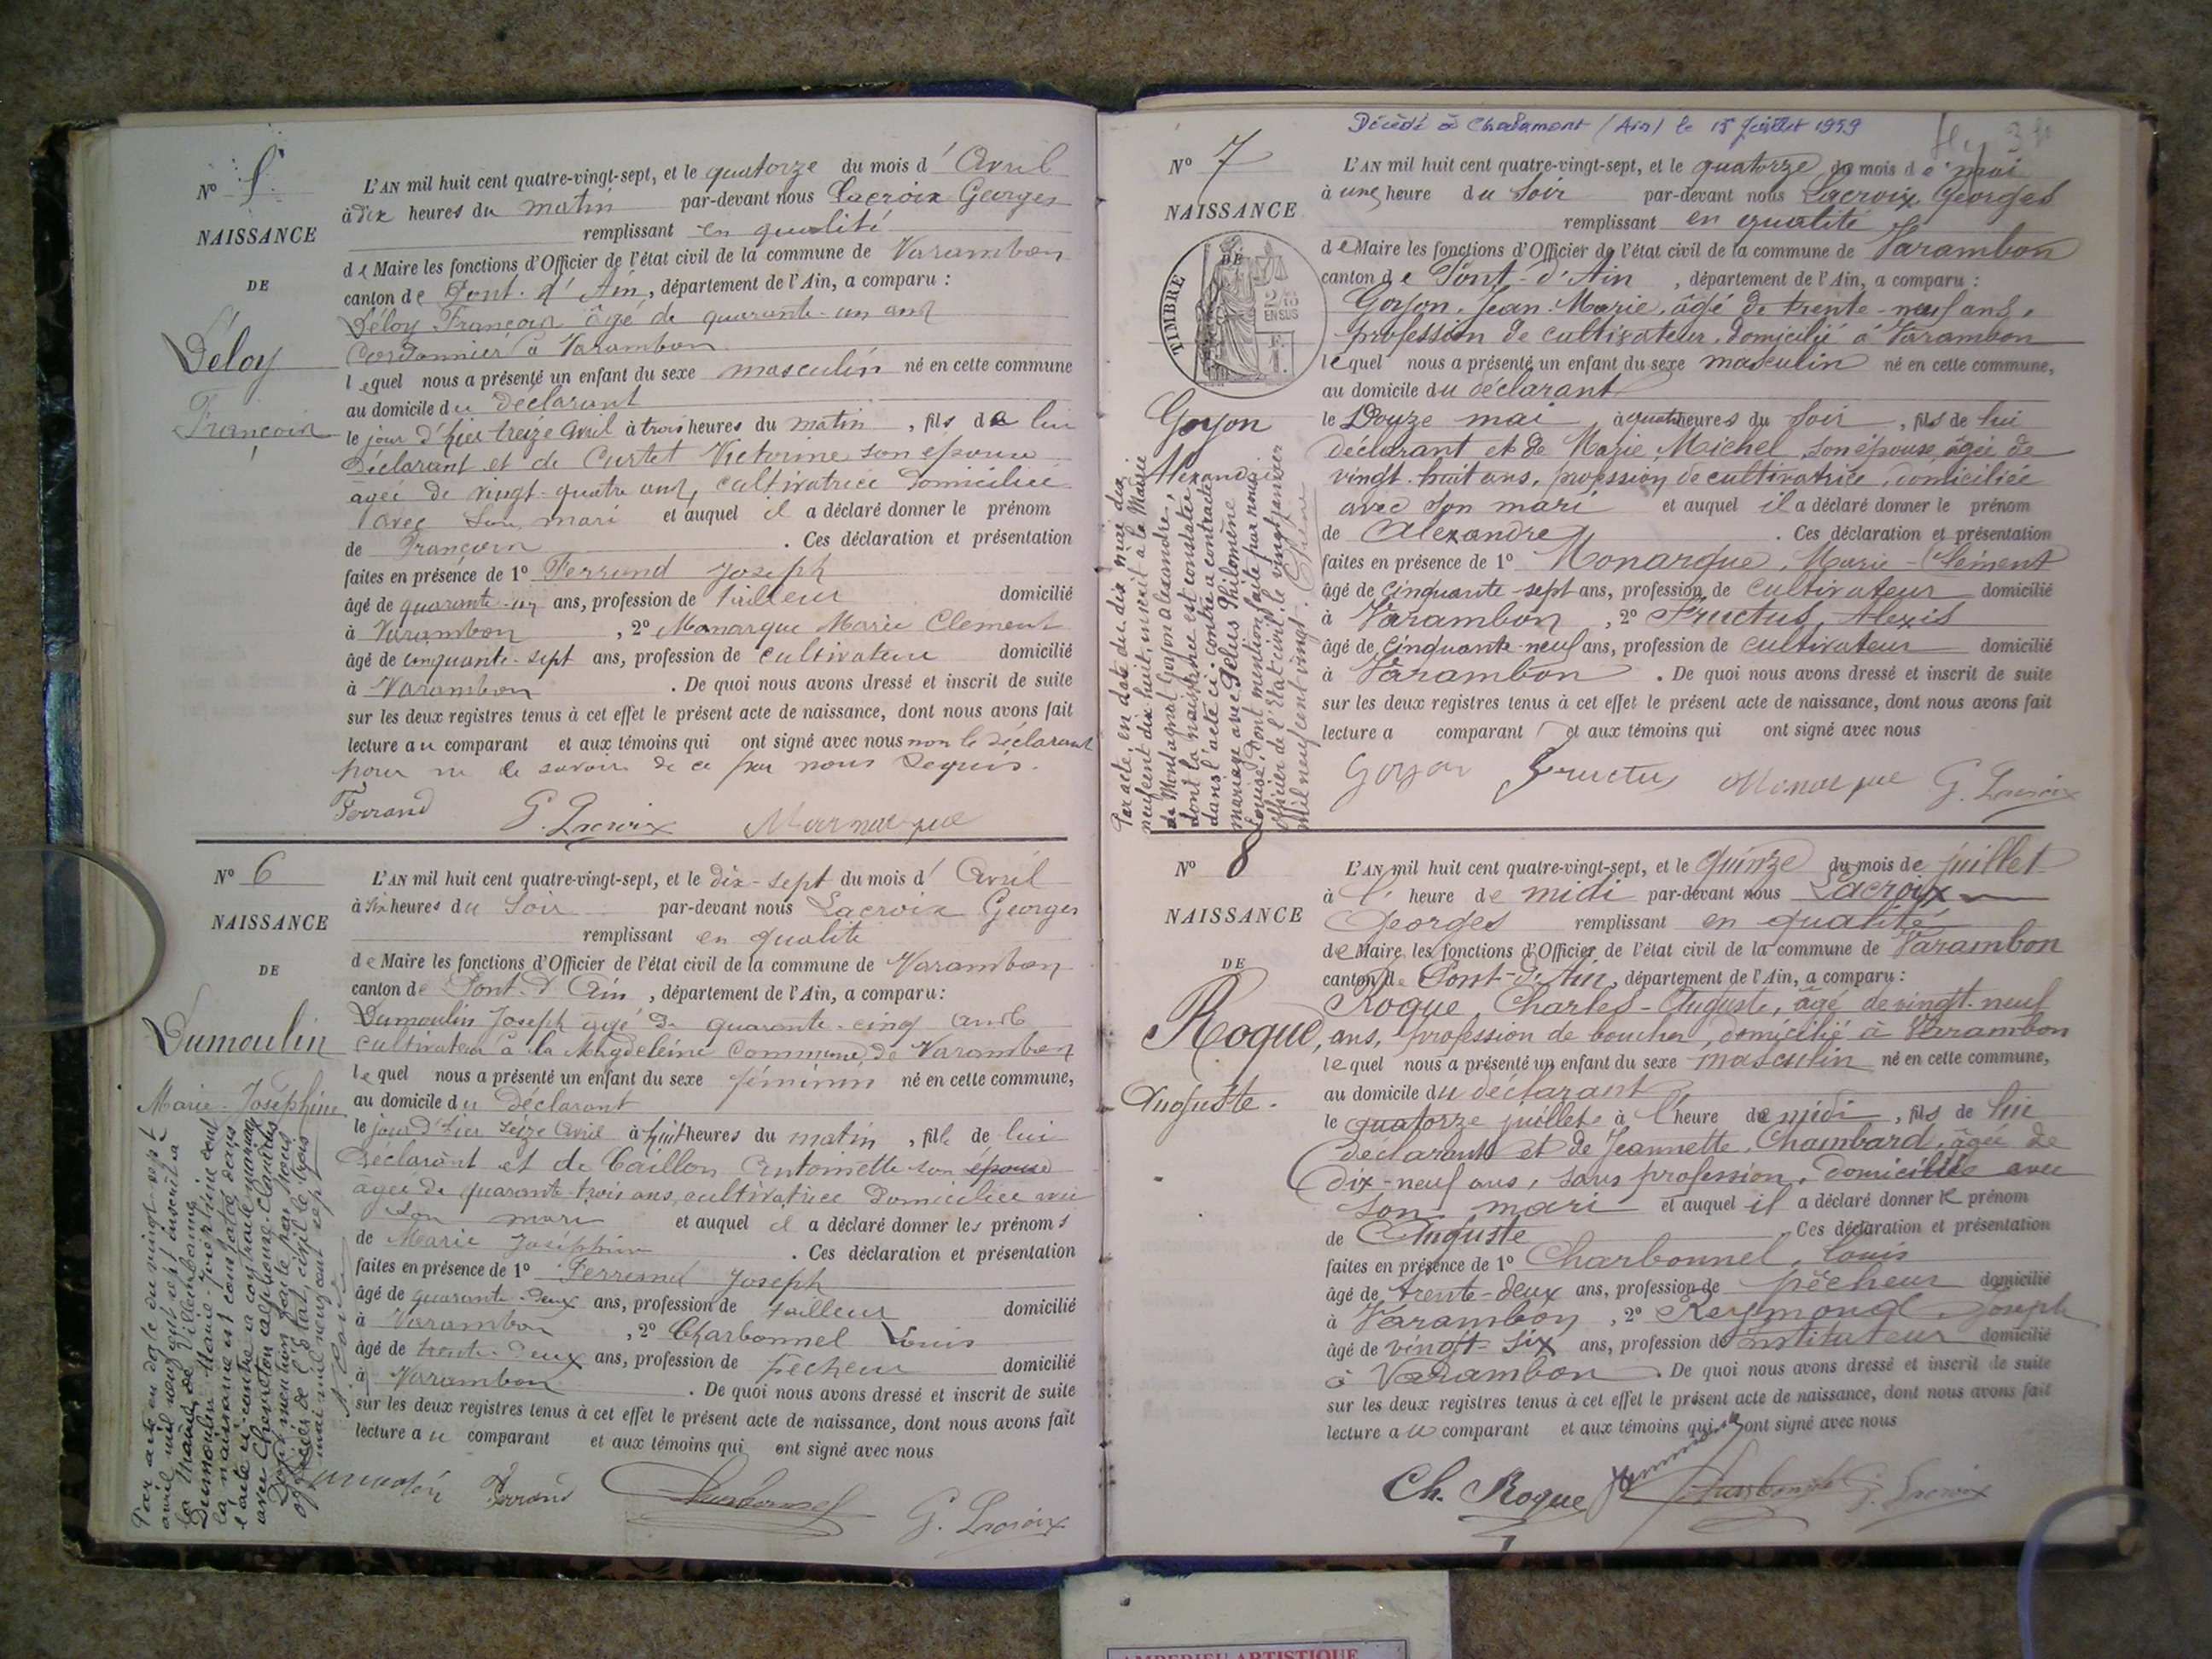 N° 5
NAISSANCE
DE
Déloy
François
L'AN mil huit cent quatre-vingt-sept, et le quatorze du mois d'Avril
à dix heures du matin par-devant nous Lacroix Georges
remplissant en qualité
de Maire les fonctions d'Officier de l'état civil de la commune de Varambon
canton de Pont-d'Ain, département de l'Ain, a comparu :
Déloy François âgé de quarante-un ans
Cordonnier à Varambon
lequel nous a présenté un enfant du sexe masculin né en cette commune
au domicile du déclarant
le jour d'hier treize Avril à trois heures du matin, fils de lui
déclarant et de Curtet Victorine son épouse
agée de vingt-quatre ans, cultivatrice domiciliée
avec son mari et auquel il a déclaré donner le prénom
de François. Ces déclaration et présentation
faites en présence de 1° Ferrand Joseph
âgé de quarante-un ans, profession de tailleur domicilié
à Varambon, 2° Monarque Marie Clement
âgé de cinquante-sept ans, profession de cultivateur domicilié
à Varambon. De quoi nous avons dressé et inscrit de suite
sur les deux registres tenus à cet effet le présent acte de naissance, dont nous avons fait
lecture au comparant et aux témoins qui ont signé avec nous non le déclarant
pour ne le savoir de ce par nous requis.
Ferrand G. Lacroix Monarque
N° 6
NAISSANCE
DE
Dumoulin
Marie-Joséphine
L'AN mil huit cent quatre-vingt-sept, et le dix-sept du mois d'Avril
à six heures du soir par-devant nous Lacroix Georges
remplissant en qualité
de Maire les fonctions d'Officier de l'état civil de la commune de Varambon
canton de Pont-d'Ain, département de l'Ain, a comparu :
Dumoulin Joseph agé de quarante-cinq ans
cultivateur à la Magdeleine commune de Varambon
lequel nous a présenté un enfant du sexe féminin né en cette commune,
au domicile du déclarant
le jour d'hier seize Avril à huit heures du matin, fille de lui
déclarant et de Caillon Antoinette son épouse
agée de quarante-trois ans, cultivatrice domiciliée avec
son mari et auquel il a déclaré donner les prénoms
de Marie Joséphine. Ces déclaration et présentation
faites en présence de 1° Ferrand Joseph
âgé de quarante-deux ans, profession de tailleur domicilié
à Varambon, 2° Charbonnel Louis
âgé de trente-deux ans, profession de pecheur domicilié
à Varambon. De quoi nous avons dressé et inscrit de suite
sur les deux registres tenus à cet effet le présent acte de naissance, dont nous avons fait
lecture au comparant et aux témoins qui ont signé avec nous
Dumoulin Ferrand Charbonnel G. Lacroix
Par acte en date du vingt-sept
avril mil neuf cent sept inscrit à
la Mairie de Villeurbanne
Dumoulin Marie-Joséphine dont
la naissance est constatée dans
l'acte ci-contre a contracté mariage
avec Chevreton Alphonse Claudius
Dont mention faite par nous
officier de l'état civil le trois
mai mil neuf cent sept
Décédé à Chalamont (Ain) le 15 Juillet 1959
N° 7
NAISSANCE
TIMBRE
DE
2/10
EN SUS
Goyon
Alexandre
L'AN mil huit cent quatre-vingt-sept, et le quatorze du mois de mai
à une heure du soir par-devant nous Lacroix, Georges
remplissant en qualité
de Maire les fonctions d'Officier de l'état civil de la commune de Varambon
canton de Pont-d'Ain, département de l'Ain, a comparu :
Goyon, Jean-Marie, âgé de trente-neuf ans,
profession de cultivateur, domicilié à Varambon
lequel nous a présenté un enfant du sexe masculin né en cette commune,
au domicile du déclarant
le Douze mai à quatre heures du soir, fils de lui
déclarant et de Marie Michel, son épouse, âgée de
vingt-huit ans, profession de cultivatrice, domiciliée
avec son mari et auquel il a déclaré donner le prénom
de Alexandre. Ces déclaration et présentation
faites en présence de 1° Monarque, Marie-Clément
âgé de cinquante-sept ans, profession de cultivateur domicilié
à Varambon, 2° Fructus, Alexis
âgé de cinquante-neuf ans, profession de cultivateur domicilié
à Varambon. De quoi nous avons dressé et inscrit de suite
sur les deux registres tenus à cet effet le présent acte de naissance, dont nous avons fait
lecture a comparant et aux témoins qui ont signé avec nous
Goyon Fructus Monarque G. Lacroix
Par acte en date du dix mai
neuf cent dix huit, inscrit à la Mairie
de Montagnat Goyon Alexandre,
dont la naissance est constatée
dans l'acte ci-contre a contracté
mariage avec Philomène
Louise, dont mention faite par nous
officier de l'état civil le vingt janvier
mil neuf cent vingt.
N° 8
NAISSANCE
DE
Roque,
Auguste.
L'AN mil huit cent quatre-vingt-sept, et le quinze du mois de juillet
à l'heure de midi par-devant nous Lacroix
Georges remplissant en qualité
de Maire les fonctions d'Officier de l'état civil de la commune de Varambon
canton de Pont-d'Ain, département de l'Ain, a comparu :
Roque Charles-Auguste, âgé de vingt-neuf
ans, profession de boucher, domicilié à Varambon
lequel nous a présenté un enfant du sexe masculin né en cette commune,
au domicile du déclarant
le quatorze juillet à l'heure de midi, fils de lui
déclarant et de Jeannette Chambard, âgée de
dix-neuf ans, sans profession, domiciliée avec
son mari et auquel il a déclaré donner le prénom
de Auguste. Ces déclaration et présentation
faites en présence de 1° Charbonnel, Louis
âgé de trente-deux ans, profession de pêcheur domicilié
à Varambon, 2° Reymond, Joseph
âgé de vingt-six ans, profession de Instituteur domicilié
à Varambon. De quoi nous avons dressé et inscrit de suite
sur les deux registres tenus à cet effet le présent acte de naissance, dont nous avons fait
lecture au comparant et aux témoins qui ont signé avec nous
Ch. Roque Charbonnel G. Lacroix
AMBERIEU ARTISTIQUE